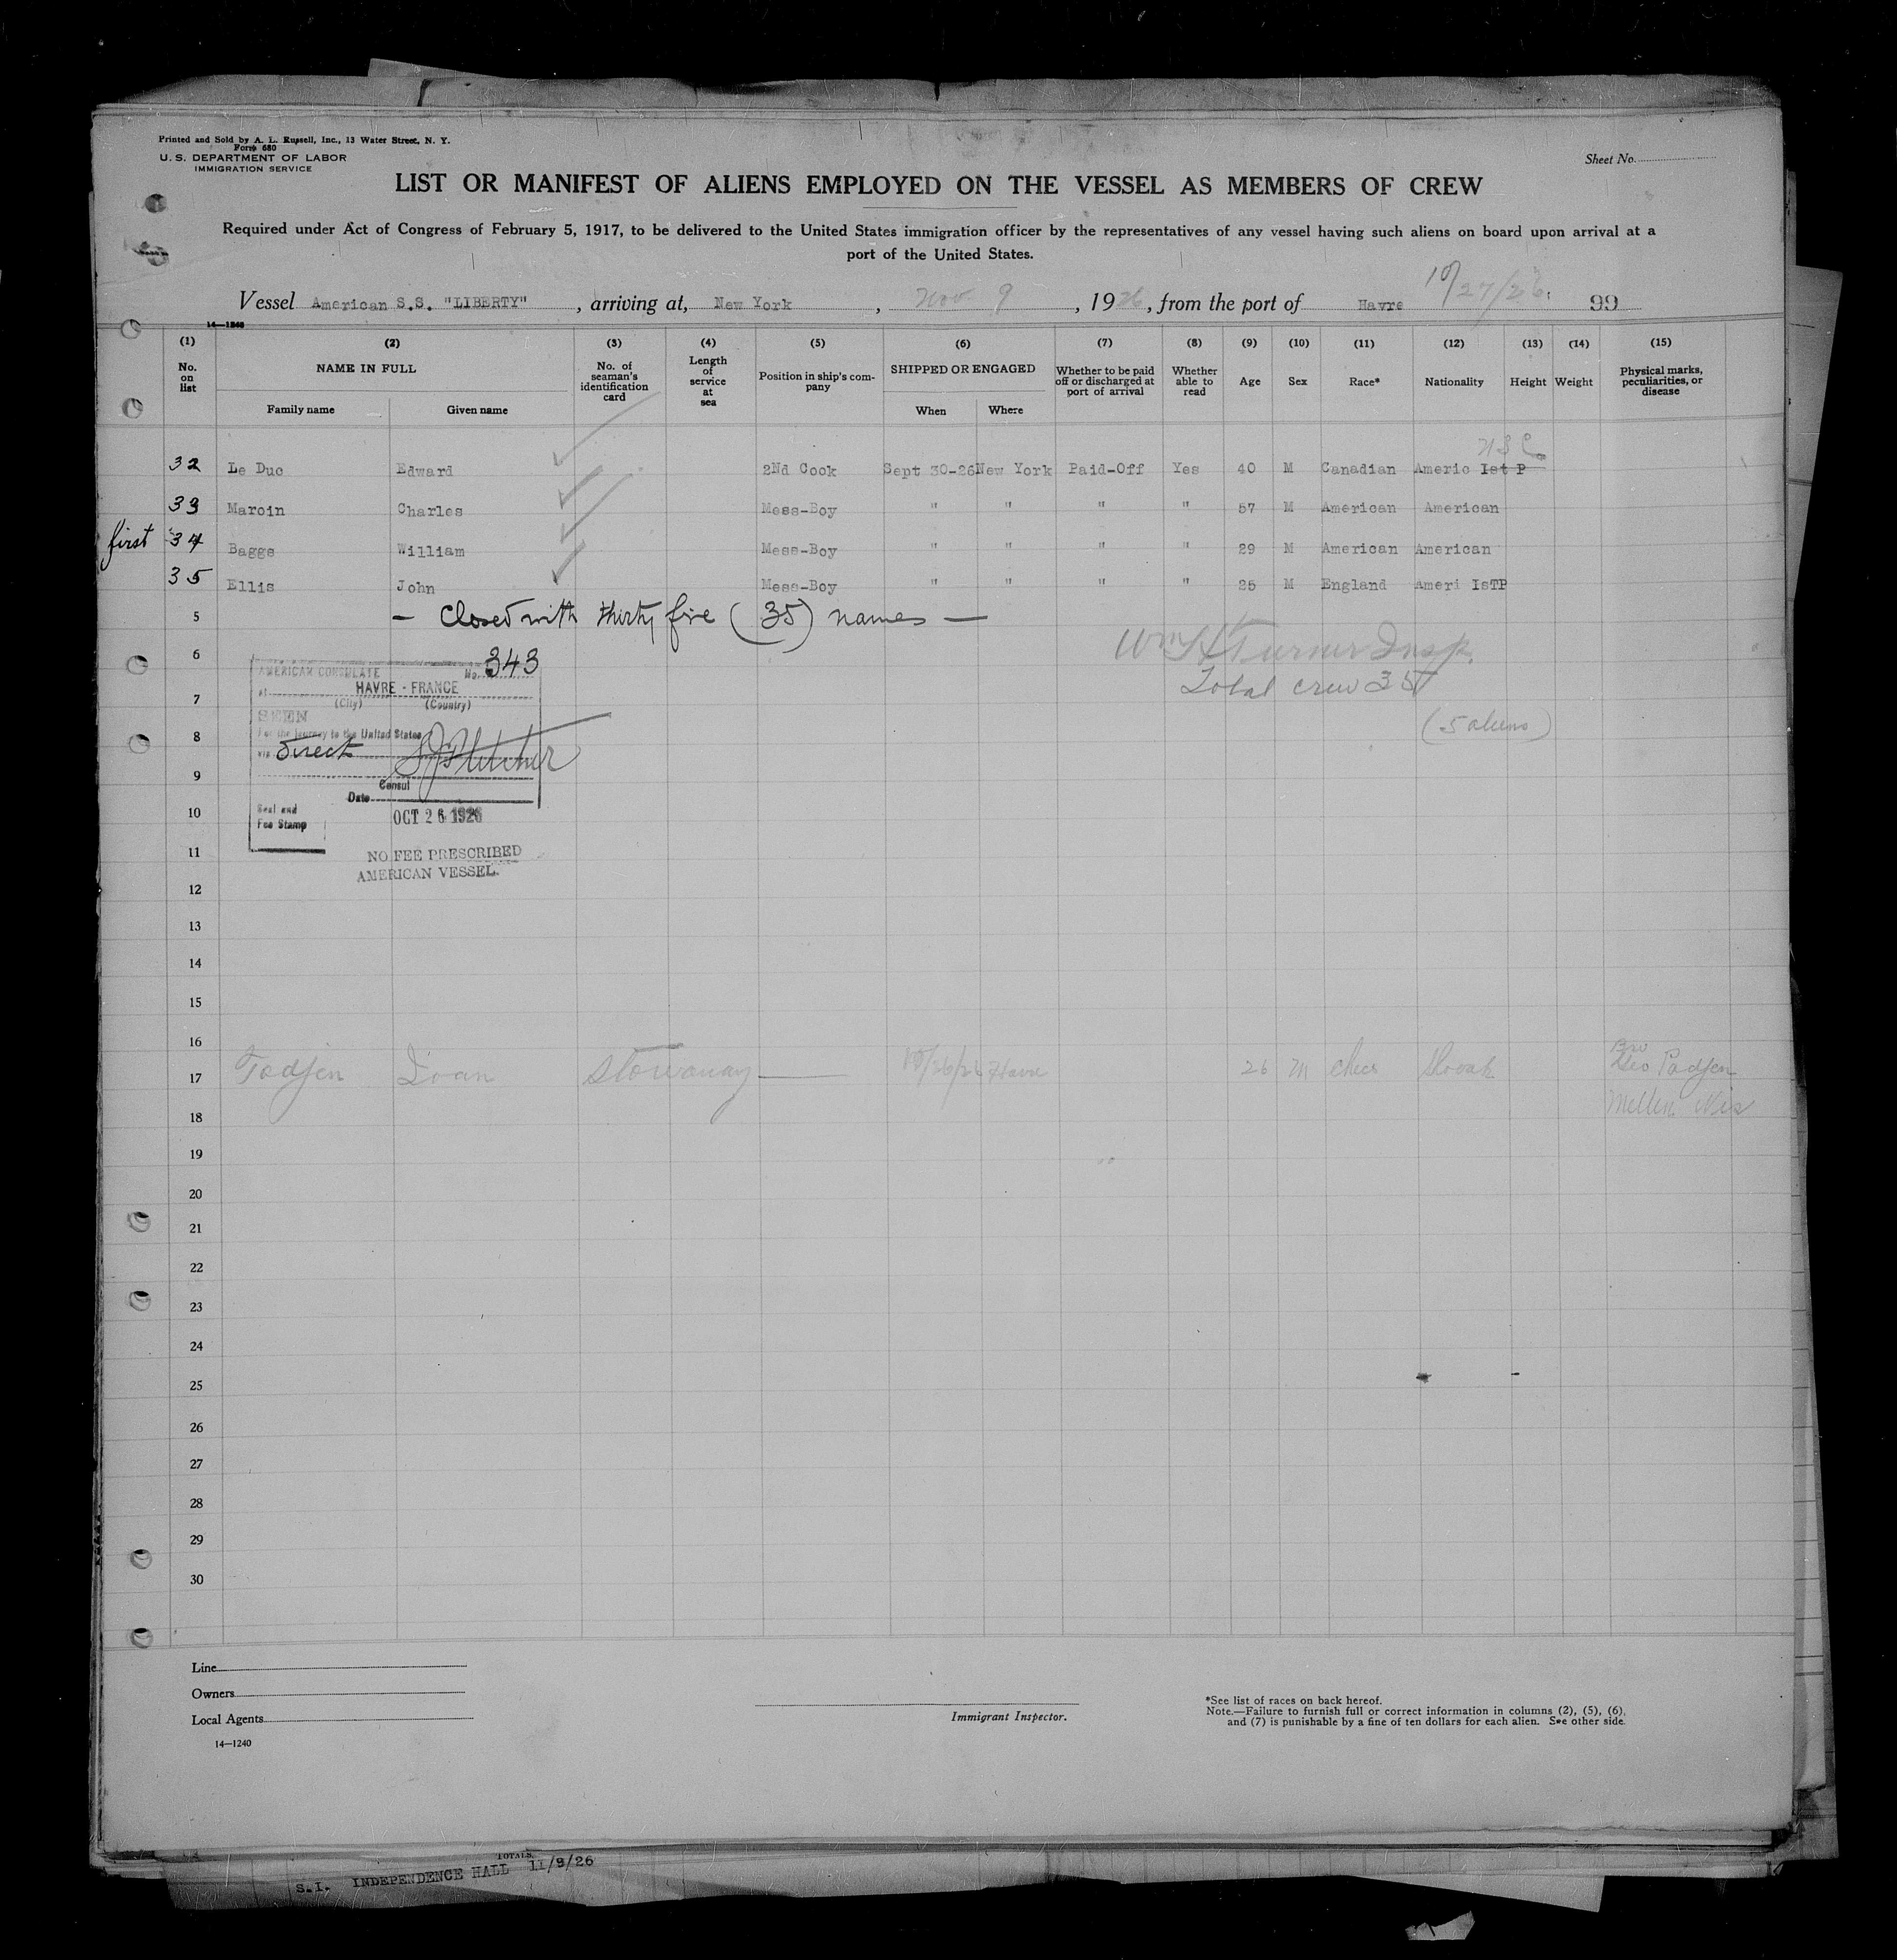 Printed and Sold by A. L. Russell, Inc., 13 Water Street, N. Y.
Form 680
U. S. DEPARTMENT OF LABOR
IMMIGRATION SERVICE
Sheet No.
LIST OR MANIFEST OF ALIENS EMPLOYED ON THE VESSEL AS MEMBERS OF CREW
Required under Act of Congress of February 5, 1917, to be delivered to the United States immigration officer by the representatives of any vessel having such aliens on board upon arrival at a
port of the United States.
Vessel American S.S. "LIBERTY", arriving at, New York, Nov. 9, 1926, from the port of Havre 10/27/26. 99
14—1240
(1) (2) (3) (4) (5) (6) (7) (8) (9) (10) (11) (12) (13) (14) (15)
No. on list NAME IN FULL No. of seaman's identification card Length of service at sea Position in ship's company SHIPPED OR ENGAGED Whether to be paid off or discharged at port of arrival Whether able to read Age Sex Race* Nationality Height Weight Physical marks, peculiarities, or disease
Family name Given name When Where
32 Le Duc Edward 2Nd Cook Sept 30-26 New York Paid-Off Yes 40 M Canadian Americ Ist P
33 Maroin Charles Mess-Boy " " " " 57 M American American
first 34 Baggs William Mess-Boy " " " " 29 M American American
35 Ellis John Mess-Boy " " " " 25 M England Ameri IsTP
5 — Closed with thirty five (35) names —
6 Wm H Turner Insp.
AMERICAN CONSULATE No. 343
At HAVRE - FRANCE
Total crew 35
7 (City) (Country)
SEEN
(5 aliens)
8 For the journey to the United States
via direct
9
Consul
Date
10 Seal and Fee Stamp OCT 26 1926
11 NO FEE PRESCRIBED
AMERICAN VESSEL.
12
13
14
15
16
17 Todjen Ivan Stowaway 10/26/26 Havre 26 M Chec Slovak Bro Geo Padjen
18 Mellen Wis
19
20
21
22
23
24
25
26
27
28
29
30
Line
Owners
Local Agents
14—1240
Immigrant Inspector.
*See list of races on back hereof.
Note.—Failure to furnish full or correct information in columns (2), (5), (6),
and (7) is punishable by a fine of ten dollars for each alien. See other side.
TOTALS
S.I. INDEPENDENCE HALL 11/9/26